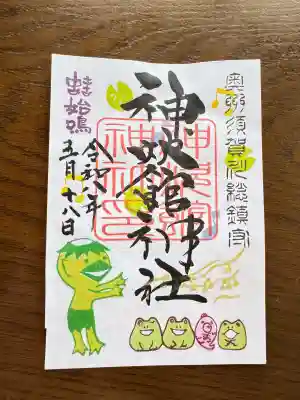 奥州須賀川総鎮守
神炊館神社
蛙始鳴
令和八年
五月十八日